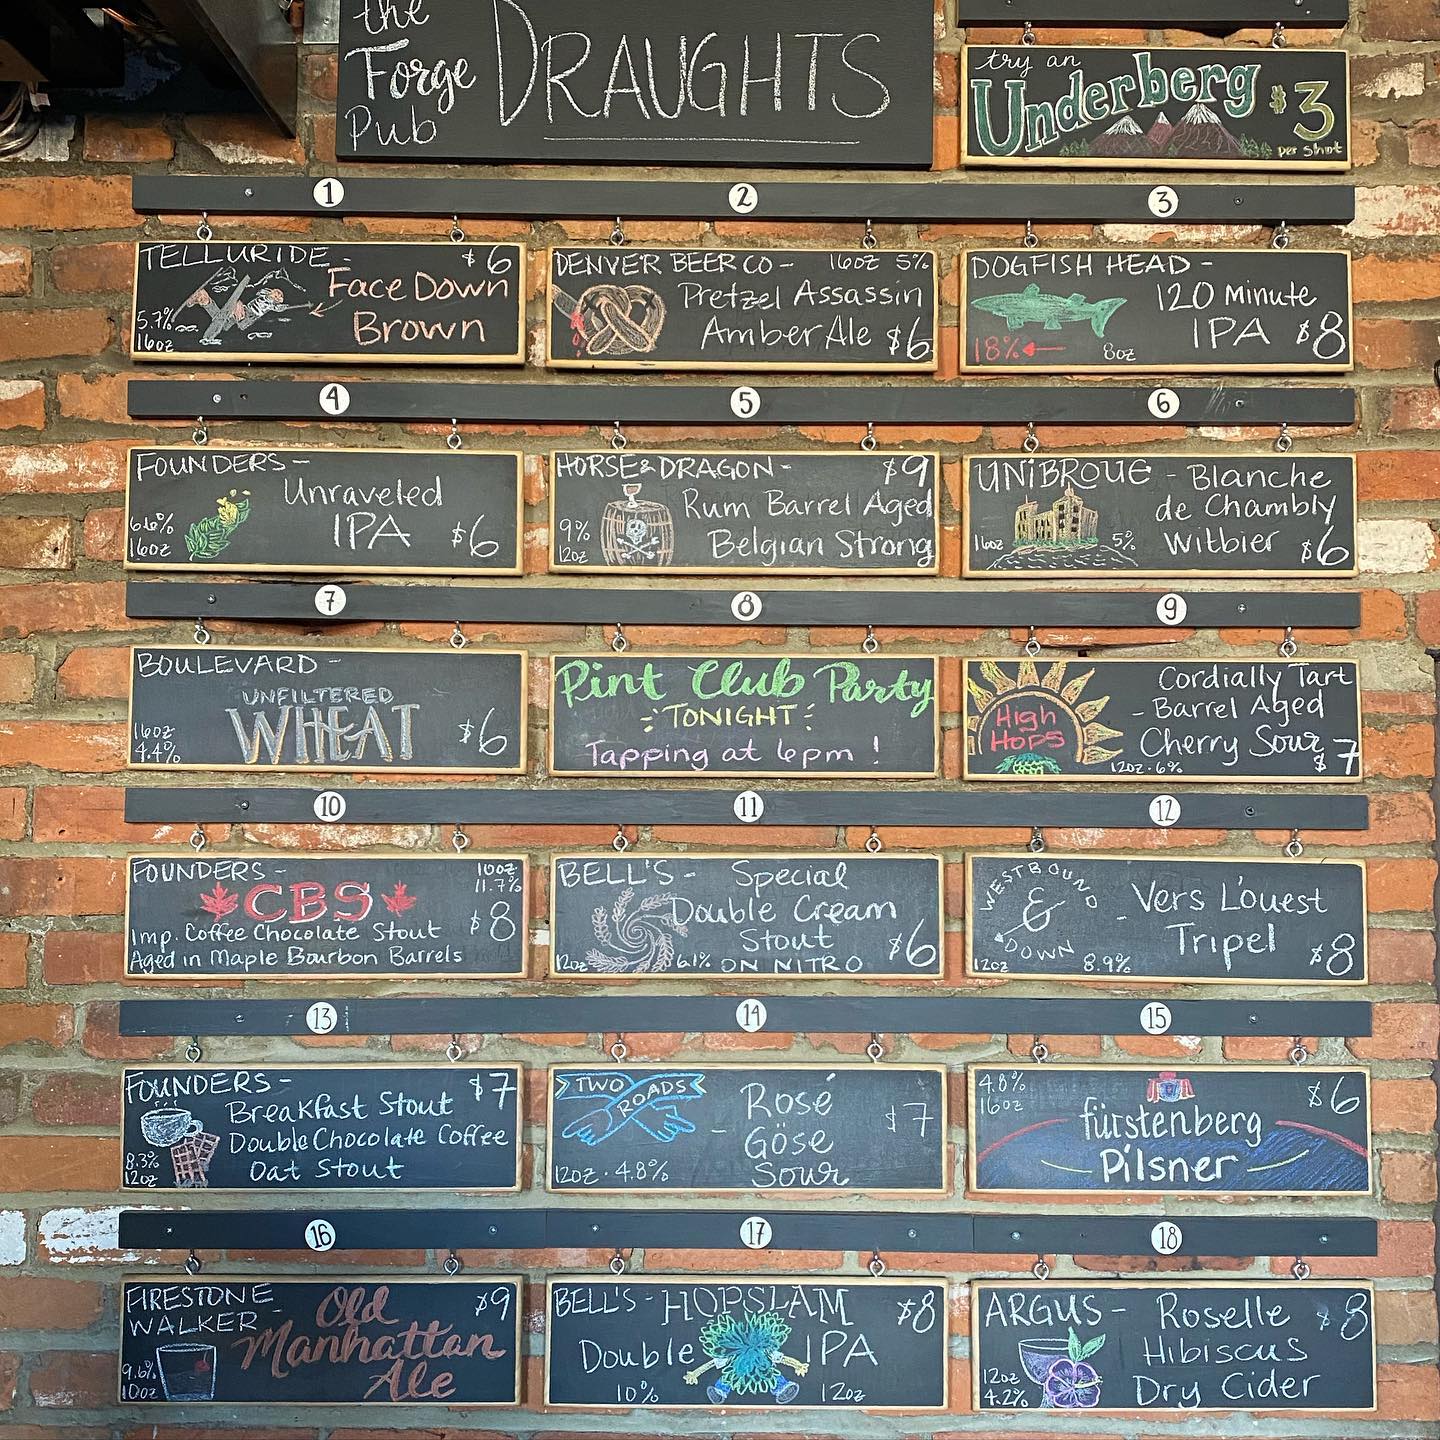 the
Forge
Pub
DRAUGHTS
try an
Underberg
$3
per shot
1
2
3
TELLURIDE -
$6
Face Down
Brown
5.7%
16oz
DENVER BEER CO -
16oz 5%
Pretzel Assassin
Amber Ale $6
DOGFISH HEAD -
120 Minute
IPA $8
18%
8oz
4
5
6
FOUNDERS -
Unraveled
IPA $6
6.6%
16oz
HORSE & DRAGON -
$9
Rum Barrel Aged
Belgian Strong
9%
12oz
UNIBROUE - Blanche
de Chambly
Witbier $6
16oz
5%
7
8
9
BOULEVARD -
UNFILTERED
WHEAT $6
16oz
4.4%
Pint Club Party
TONIGHT
Tapping at 6pm !
High
Hops
Cordially Tart
- Barrel Aged
Cherry Sour
$7
12oz · 6%
10
11
12
FOUNDERS -
10oz
11.7%
CBS
$8
Imp. Coffee Chocolate Stout
Aged in Maple Bourbon Barrels
BELL'S - Special
Double Cream
Stout $6
12oz 6.1% ON NITRO
WESTBOUND
&
DOWN
- Vers L'ouest
Tripel $8
12oz 8.9%
13
14
15
FOUNDERS -
$7
Breakfast Stout
Double Chocolate Coffee
Oat Stout
8.3%
12oz
TWO ROADS
- Rosé
Göse
Sour
$7
12oz · 4.8%
4.8%
16oz
$6
fürstenberg
Pilsner
16
17
18
FIRESTONE
WALKER -
$9
Old
Manhattan
Ale
9.6%
10oz
BELL'S - HOPSLAM $8
Double IPA
10% 12oz
ARGUS - Roselle $8
Hibiscus
Dry Cider
12oz
4.2%